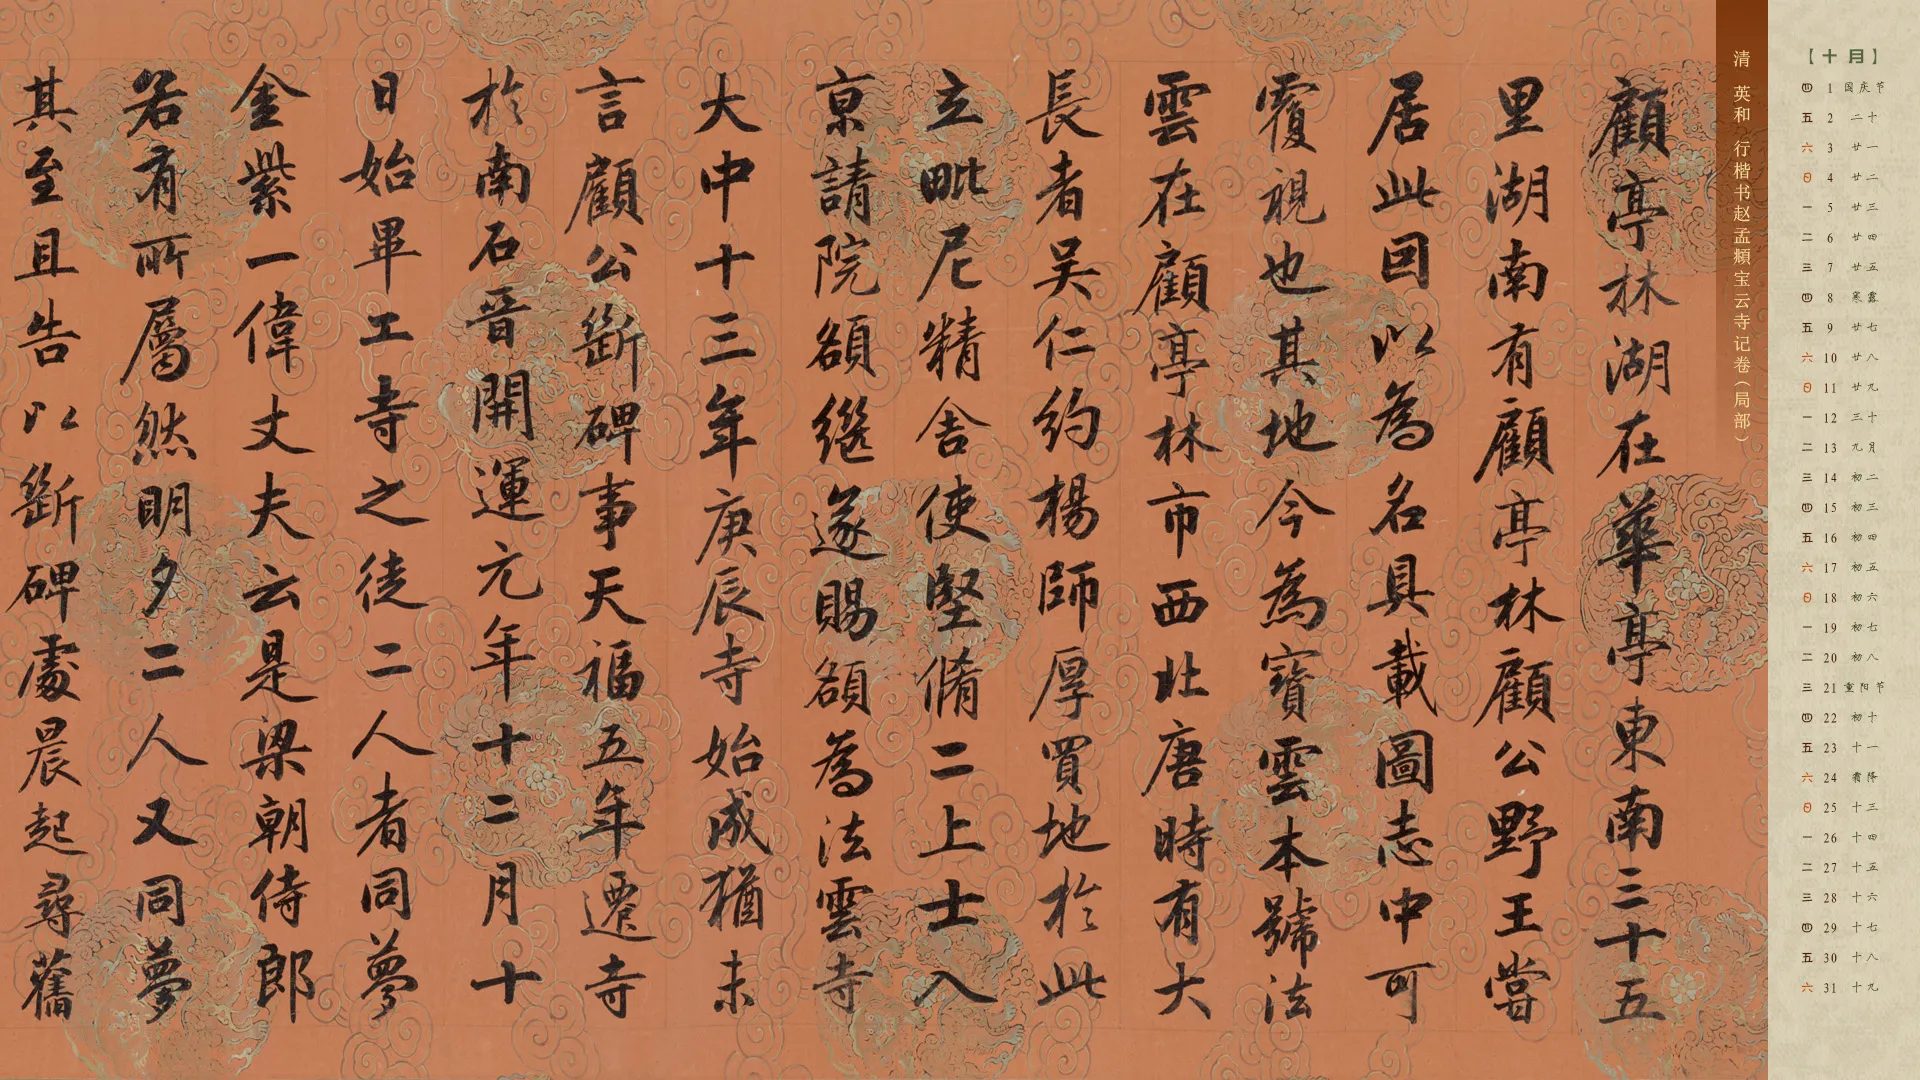 顧亭林湖在華亭東南三十五
里湖南有顧亭林顧公野王嘗
居此因以為名具載圖志中可
覆視也其地今為寶雲本號法
雲在顧亭林市西北唐時有大
長者吳仁約楊師厚買地於此
立毗尼精舍使堅脩二上士入
京請院額繼遂賜額為法雲寺
大中十三年庚辰寺始成猶未
言顧公斷碑事天福五年遷寺
於南石晉開運元年十二月十
日始畢工寺之徒二人者同夢
金紫一偉丈夫云是梁朝侍郎
若有所屬然明夕二人又同夢
其至且告以斷碑處晨起尋舊
清 英和 行楷书赵孟頫宝云寺记卷(局部)
【十月】
四 1 国庆节
五 2 二十
六 3 廿一
日 4 廿二
一 5 廿三
二 6 廿四
三 7 廿五
四 8 寒露
五 9 廿七
六 10 廿八
日 11 廿九
一 12 三十
二 13 九月
三 14 初二
四 15 初三
五 16 初四
六 17 初五
日 18 初六
一 19 初七
二 20 初八
三 21 重阳节
四 22 初十
五 23 十一
六 24 霜降
日 25 十三
一 26 十四
二 27 十五
三 28 十六
四 29 十七
五 30 十八
六 31 十九